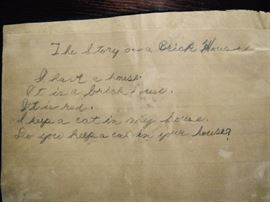 The Story on a Brick House
I have a house.
It is a brick house.
It is red.
I keep a cat in my house.
Do you keep a cat in your house?